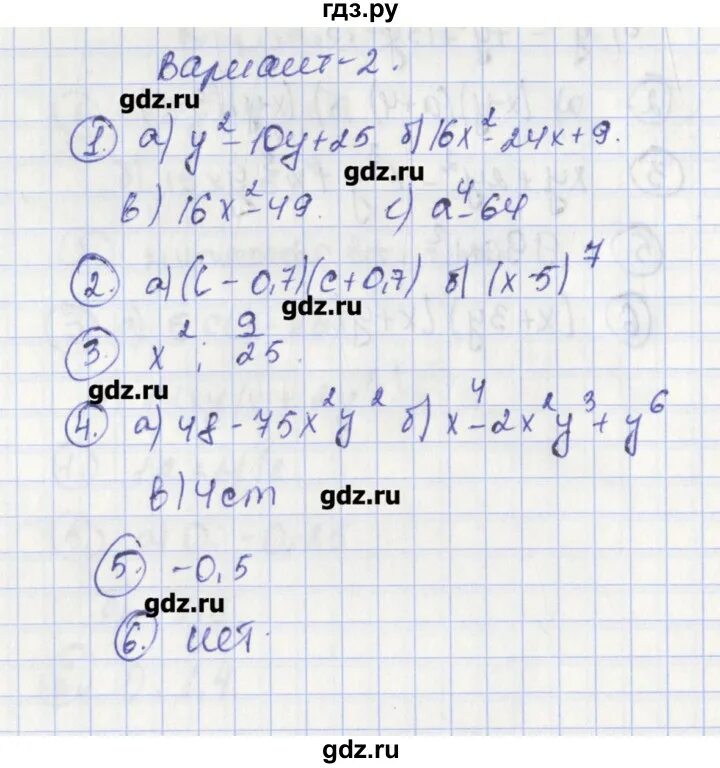 гдз.ру
Вариант-2.
gdz.ru
1. а) y² - 10y + 25 б) 16x² - 24x + 9.
gdz.ru
в) 16x² - 49. с) a⁴ - 64
2. а) (c - 0,7)(c + 0,7) б) (x - 5)⁷
gdz.ru
3. x²; 9/25.
gdz.ru
4. а) 48 - 75x²y² б) x⁴ - 2x²y³ + y⁶
в) 4cm gdz.ru
5. -0,5
gdz.ru
6. нет.
gdz.ru